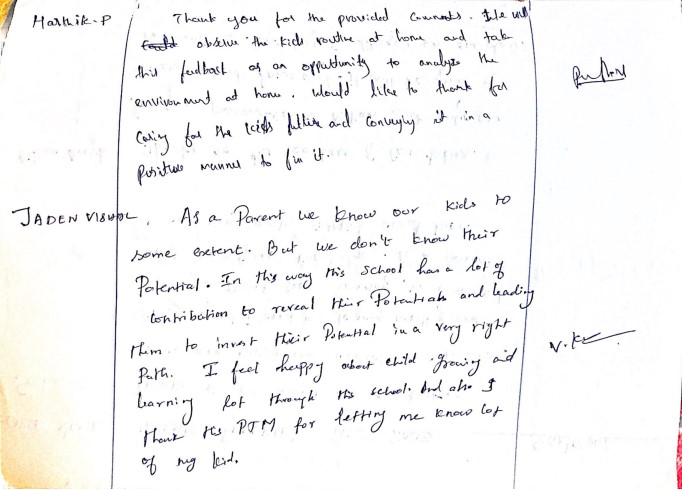 Harthik.P
Thank you for the provided Comments. We will
observe the kids routine at home and take
this feedback as an oppultunity to analyze the
environment at home. Would like to thank for
Caring for the kids future and Conveying it in a
Positive manner to fix it.
JADEN VISHAL.
As a Parent we know our kids to
some extent. But we don't know their
Potential. In this way this school has a lot of
Contribution to reveal their Potentials and leading
them to invest their Potential in a very right
Path. I feel happy about child growing and
learning lot through this school. And also I
thank this PTM for letting me know lot
of my kid.
V.K